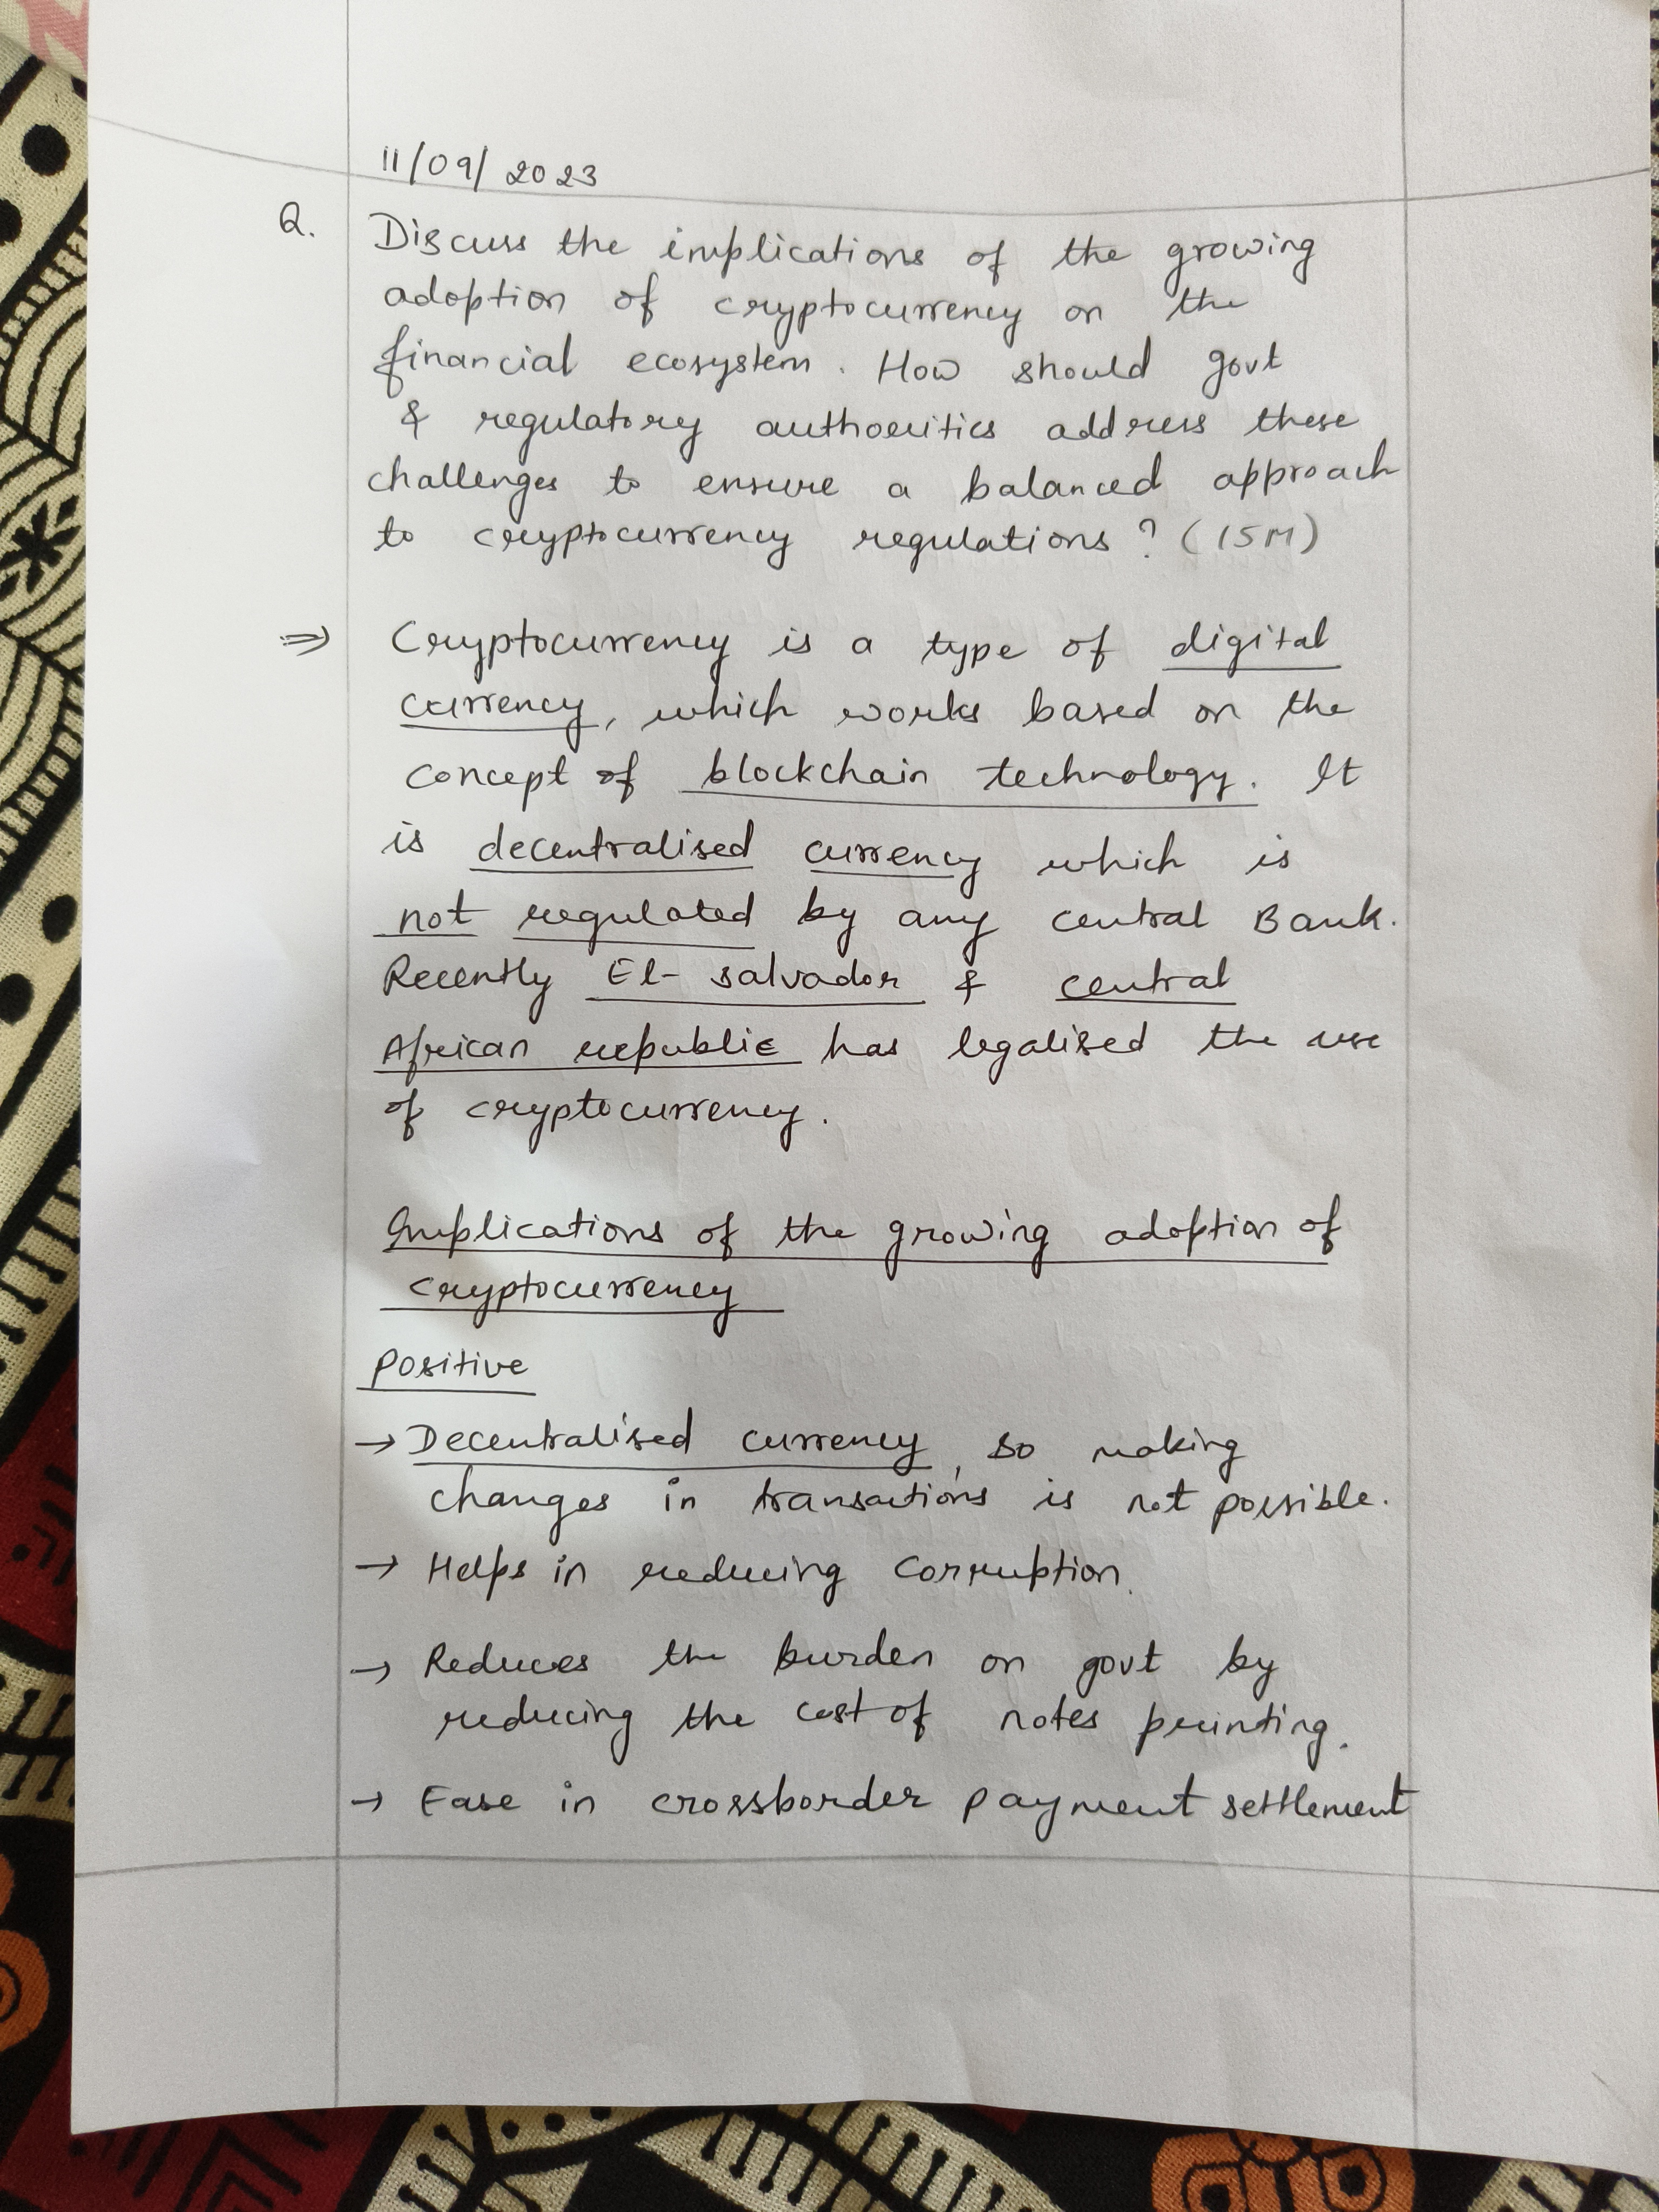 11/09/2023
Q. Discuss the implications of the growing
adoption of cryptocurrency on the
financial ecosystem. How should govt
& regulatory authorities address these
challenges to ensure a balanced approach
to cryptocurrency regulations? (15M)
⇒ Cryptocurrency is a type of digital
currency, which works based on the
concept of blockchain technology. It
is decentralised currency which is
not regulated by any central Bank.
Recently El-salvador & central
African republic has legalised the use
of cryptocurrency.
Implications of the growing adoption of
cryptocurrency
Positive
→ Decentralised currency, so making
changes in transactions is not possible.
→ Helps in reducing corruption.
→ Reduces the burden on govt by
reducing the cost of notes printing.
→ Ease in crossborder payment settlement